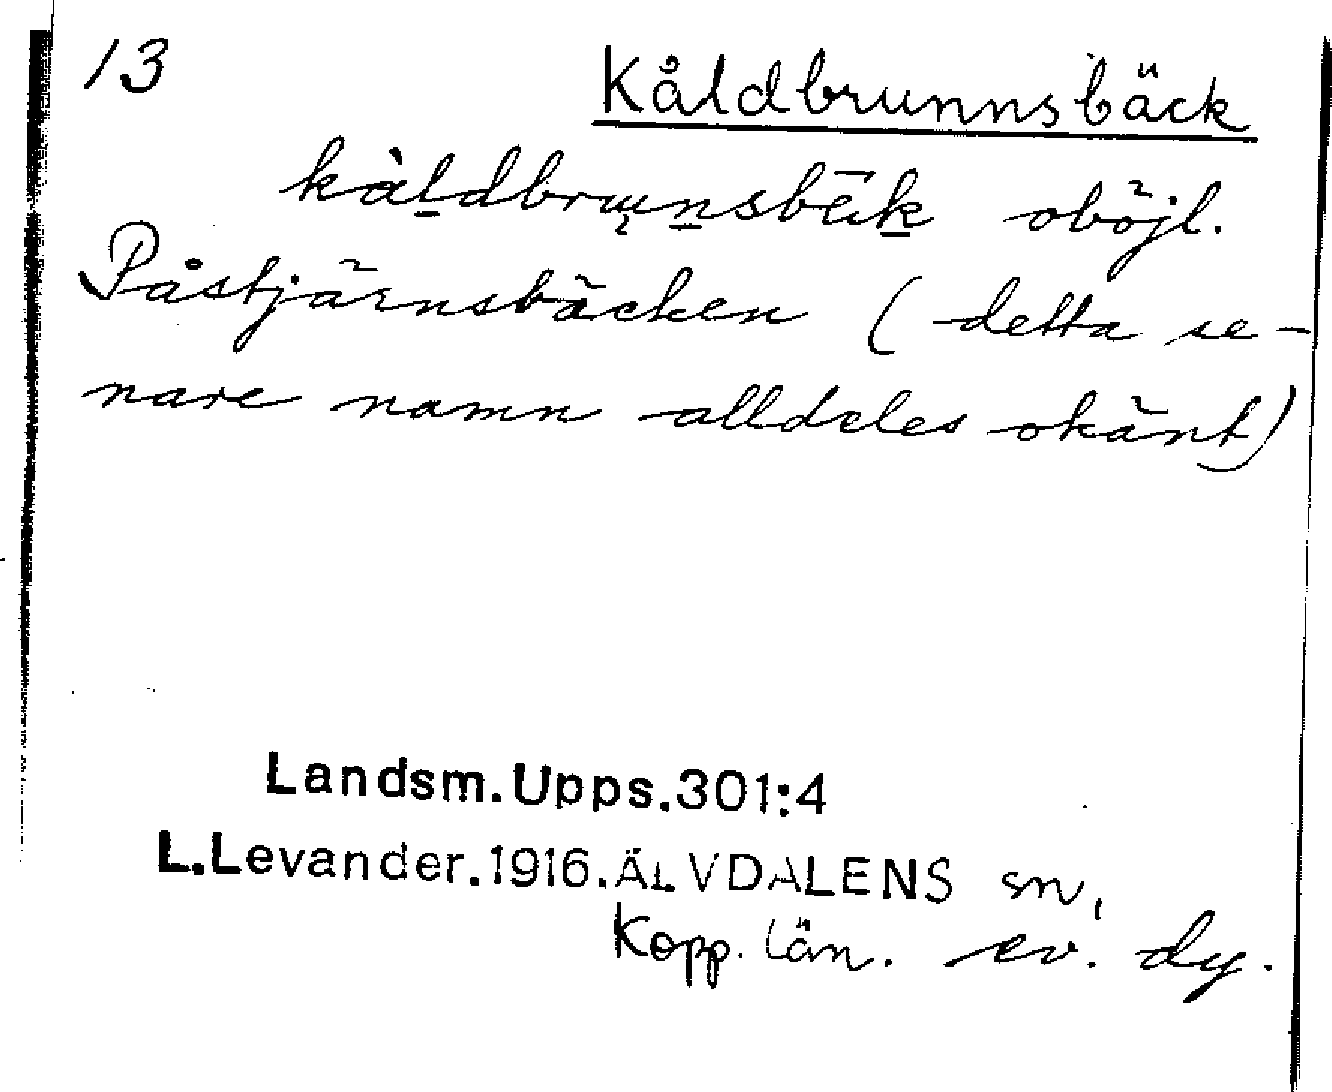 13
Kåldbrunnsbäck
kàldbrunsbäk oböjl.
Påstjärnsbäcken (detta se-
nare namn alldeles okänt)
Landsm.Upps.301:4
L.Levander.1916.ÄLVDALENS sn,
Kopp. län. ev. dy.